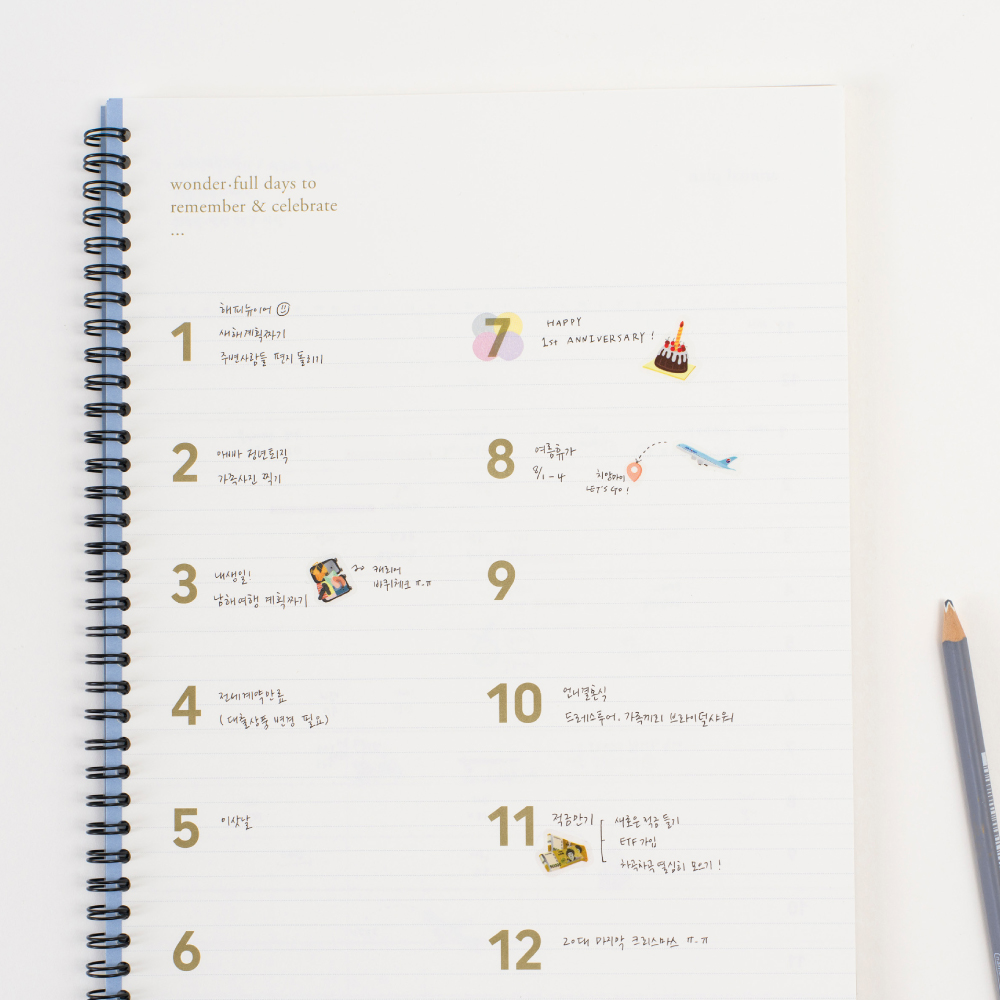 wonder·full days to
remember & celebrate
...
1
해피뉴이어
새해계획짜기
주변사람들 편지 돌리기
2
아빠 정년퇴직
가족사진 찍기
3
내생일!
남해여행 계획짜기
캐리어
바퀴체크 ㅠ.ㅠ
4
전세계약만료
(대출상품 변경 필요)
5
이삿날
6
7
HAPPY
1st ANNIVERSARY!
8
여름휴가
8/1-4
치앙마이
LET'S GO!
9
10
언니결혼식
드레스투어, 가족끼리 브라이덜샤워
11
적금만기
새로운 적금 들기
ETF 가입
차곡차곡 열심히 모으기!
12
20대 마지막 크리스마스 ㅠ.ㅠ